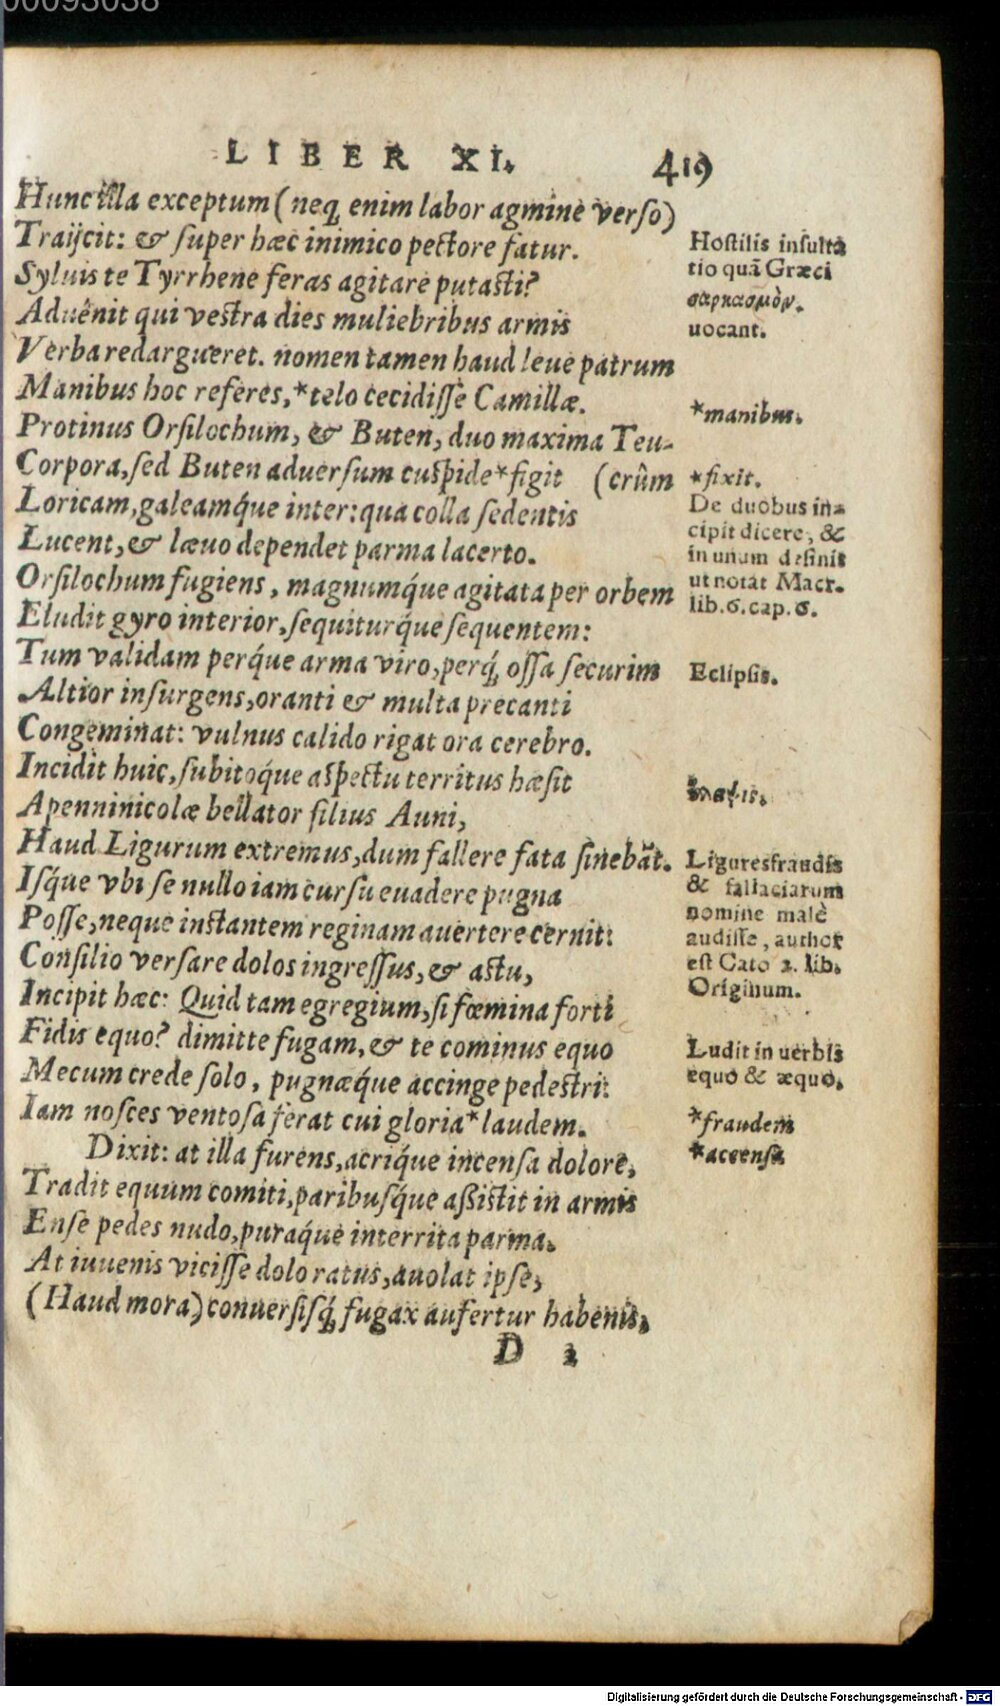 00093038
LIBER XI. 419
Hunc illa exceptum (neq; enim labor agmine verso)
Traijcit: & super hæc inimico pectore fatur.
Syluis te Tyrrhene feras agitare putasti?
Aduênit qui vestra dies muliebribus armis
Verba redargueret. nomen tamen haud leue patrum
Manibus hoc referes,*telo cecidisse Camillæ.
Protinus Orsilochum, & Buten, duo maxima Teu-
Corpora, sed Buten aduersum cuspide*figit (crûm
Loricam, galeamq́ue inter: qua colla sedentis
Lucent, & læuo dependet parma lacerto.
Orsilochum fugiens, magnumq́ue agitata per orbem
Eludit gyro interior, sequiturq́ue sequentem:
Tum validam perq́ue arma viro, perq́; ossa securim
Altior insurgens, oranti & multa precanti
Congeminat: vulnus calido rigat ora cerebro.
Incidit huic, subitoq́ue aspectu territus hæsit
Apenninicolæ bellator filius Auni,
Haud Ligurum extremus, dum fallere fata sinebāt.
Isq́ue vbi se nullo iam cursu euadere pugna
Posse, neque instantem reginam auertere cernit:
Consilio versare dolos ingressus, & astu,
Incipit hæc: Quid tam egregium, si fœmina forti
Fidis equo? dimitte fugam, & te cominus equo
Mecum crede solo, pugnæq́ue accinge pedestri:
Iam nosces ventosa ferat cui gloria*laudem.
Dixit: at illa furens, acriq́ue incensa dolore,
Tradit equum comiti, paribusq́ue assistit in armis
Ense pedes nudo, puraq́ue interrita parma.
At iuuenis vicisse dolo ratus, auolat ipse,
(Haud mora) conuersisq́; fugax aufertur habenis,
D 2
Hostilis insulta
tio quā Græci
σαρκασμὸν.
uocant.
*manibus.
*fixit.
De duobus in=
cipit dicere, &
in unum desinit
ut notat Macr.
lib.6.cap.6.
Eclipsis.
Ligures fraudis
& fallaciarum
nomine malè
audisse, author
est Cato 2. lib.
Originum.
Ludit in uerbis
equo & æquo.
*fraudem
*accensa
Digitalisierung gefördert durch die Deutsche Forschungsgemeinschaft - DFG